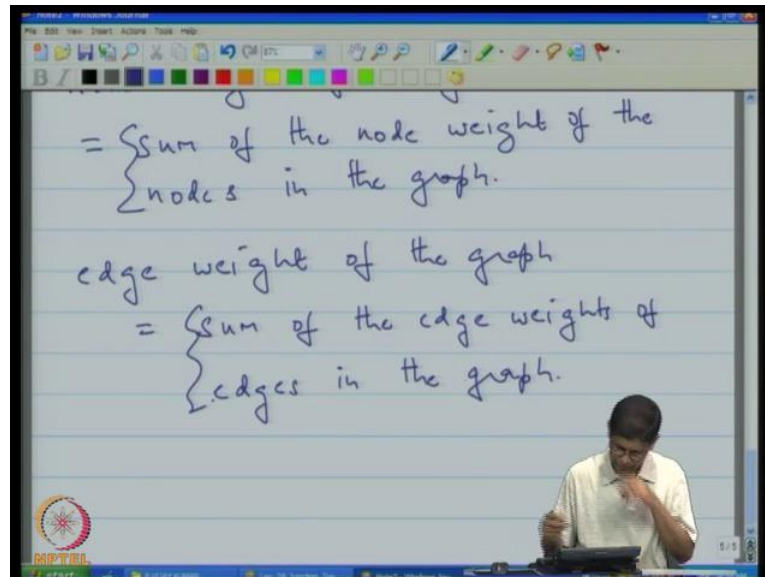 Note2 - Windows Journal
File Edit View Insert Actions Tools Help
87%
B I
= { sum of the node weight of the
nodes in the graph.
edge weight of the graph
= { sum of the edge weights of
edges in the graph.
5/5
NPTEL
start